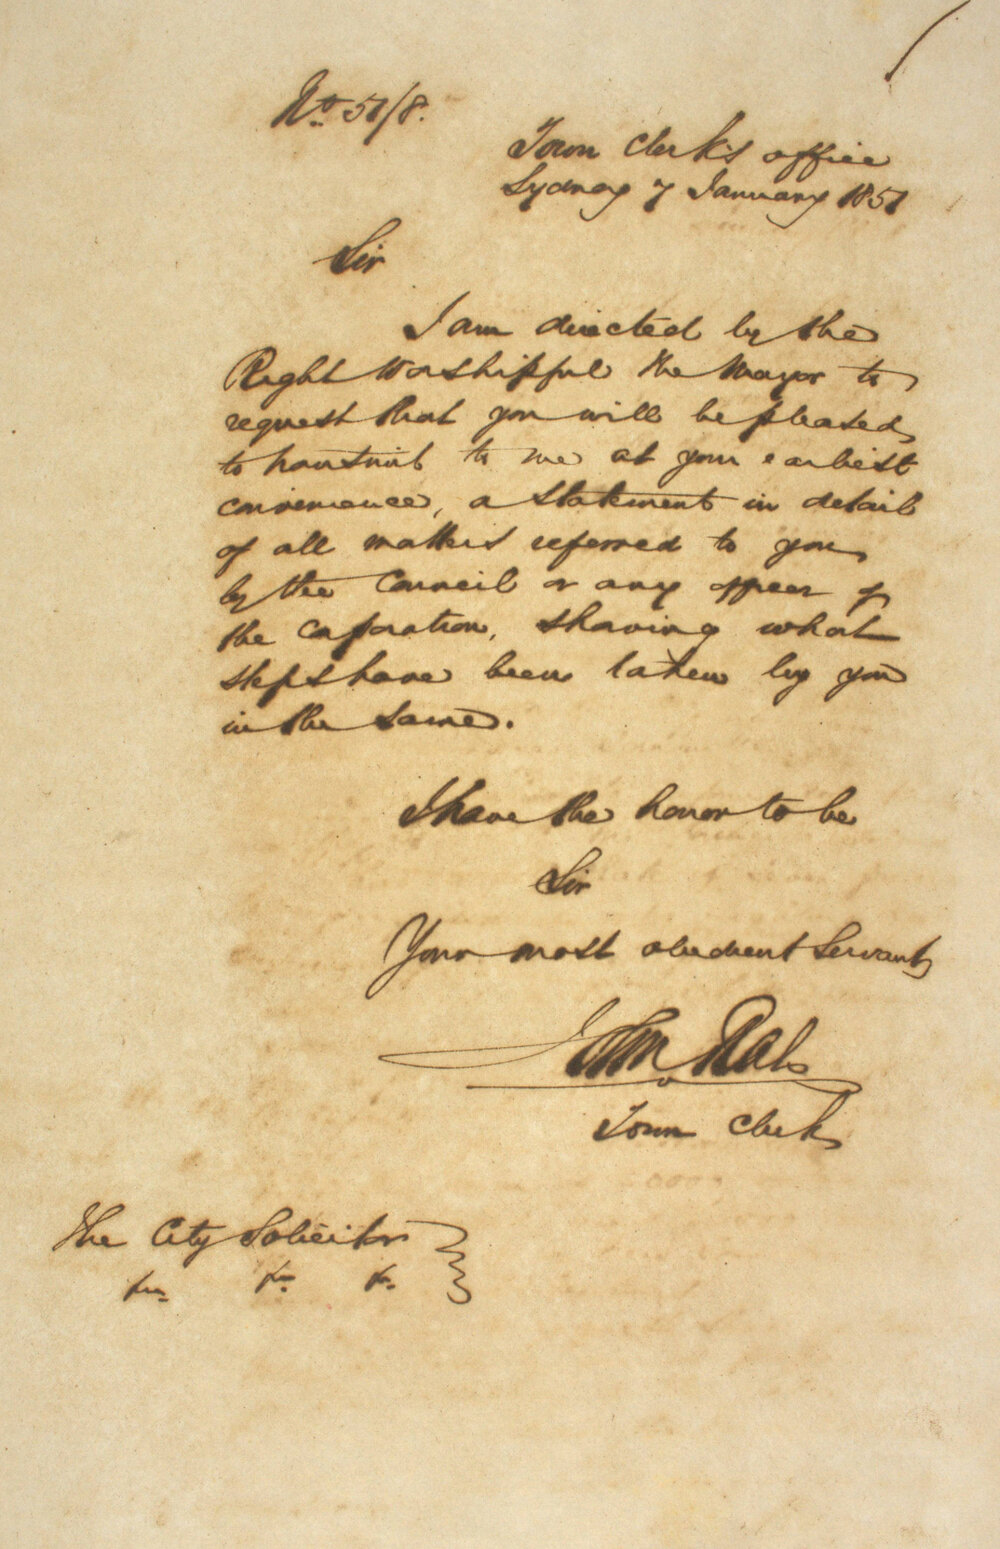 No. 51/8.
Town Clerk's office
Sydney 7 January 1851
Sir
I am directed by the
Right Worshipful the Mayor to
request that you will be pleased
to transmit to me at your earliest
convenience, a statement in detail
of all matters referred to you
by the Council or any officer of
the Corporation, shewing what
steps have been taken by you
in the same.
I have the honor to be
Sir
Your most obedient Servant
John Rae
Town Clerk
The City Solicitor